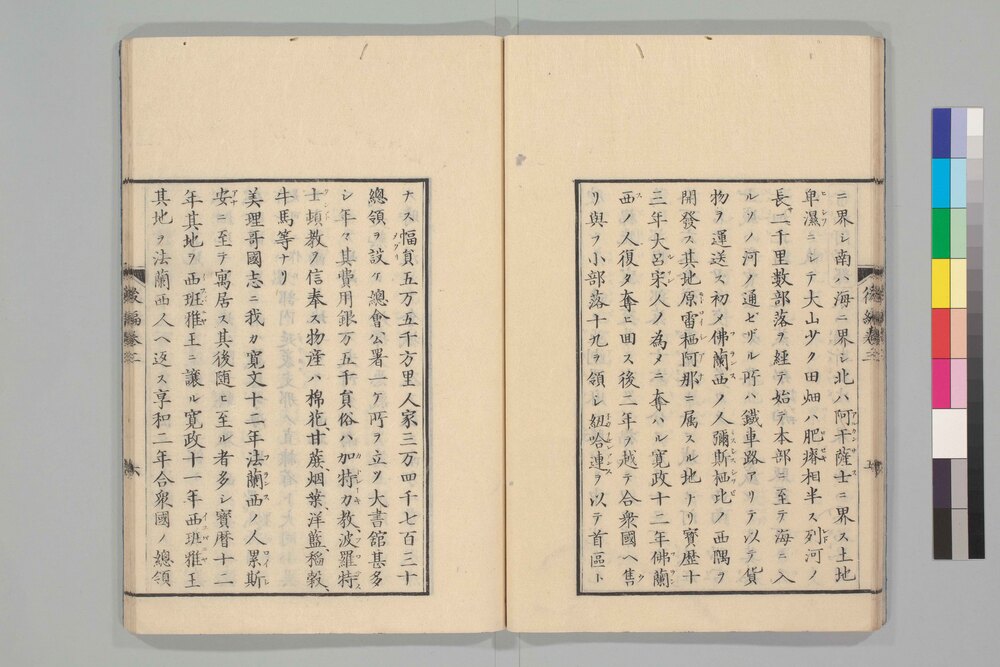 ニ界シ南ハ海ニ界シ北ハ阿干薩士ニ界ス土地
卑濕ニシテ大山少ク田畑ハ肥瘠相半ス列河ノ
長サ二千里数部落ヲ経テ始テ本部ニ至テ海ニ入
ルソノ河ノ通セザル所ハ鐵車路アリテ以テ貨
物ヲ運送ス初メ佛蘭西ノ人彌斯栖比ノ西隅ヲ
開發ス其地原雷栖阿那ニ属スル地ナリ寳歴十
三年大呂宋人ノ為メニ奪ハル寛政十二年佛蘭
西ノ人復タ奪ヒ回ス後二年ヲ越テ合衆國ヘ售
リ與フ小部落十九ヲ領シ紐哈連ヲ以テ首區ト
ナス幅員五万五千方里人家三万四千七百三十
總領ヲ設ケ總會公署一ケ所ヲ立ツ大書館甚多
シ年々其費用銀万五千員俗ハ加特力教、波羅特
士頓教ヲ信奉ス物産ハ棉花、甘蔗、烟葉、洋藍、稲穀、
牛馬等ナリ
美理哥國志ニ我カ寛文十二年法蘭西ノ人累斯
安ニ至テ寓居ス其後随ヒ至ル者多シ寳暦十二
年其地ヲ西班雅王ニ讓ル寛政十一年西班雅王
其地ヲ法蘭西人ヘ返ス享和二年合衆國ノ總領